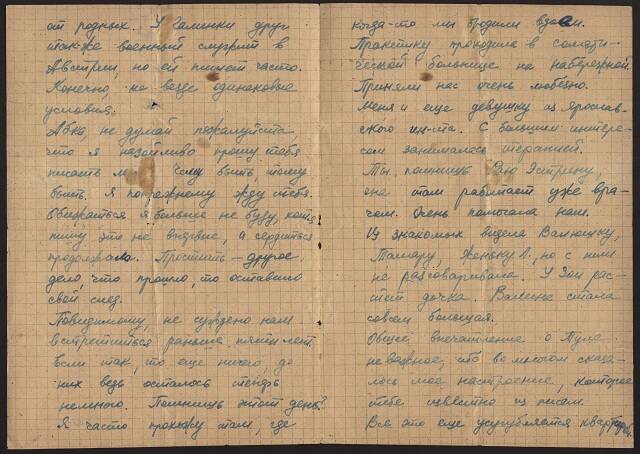 от родных. У Галинки друг
так-же военный служит в
Австрии, но ей пишет часто.
Конечно, не везде одинаковые
условия.
Абка, не думай пожалуйста,
что я назойливо прошу тебя
писать Чему быть, тому
быть. Я по прежнему жду тебя.
Обижаться я больше не буду, хотя
пишу это не впервые, а сердиться
продолжала. Простить – другое
дело, что прошло, то оставило
свой след.
Повидимому, не суждено нам
встретиться раньше, лет.
Если так, то еще ничего, до
них ведь осталось теперь
немного. Помнишь этот день?
Я часто прохожу там, где
когда-то мы бродили вдвоем.
Практику проходила в сомати-
ческой больнице на набережной.
Приняли нас очень любезно.
Меня и еще девушку из Ярослав-
ского ин-та. С большим интере-
сом занималась терапией.
Ты, помнишь Эстрину,
она там работает уже вра-
чом. Очень помогала нам.
Из знакомых видела Валюшку,
Тамару, Женьку Л., но с ним
не разговаривала. У Зои рас-
тет дочка. Валина стала
совсем большая.
Общее впечатление о Туле
неважное, ибо во многом сказа-
лось мое настроение, которое
тебе известно из писем.
Все это еще усугубляется